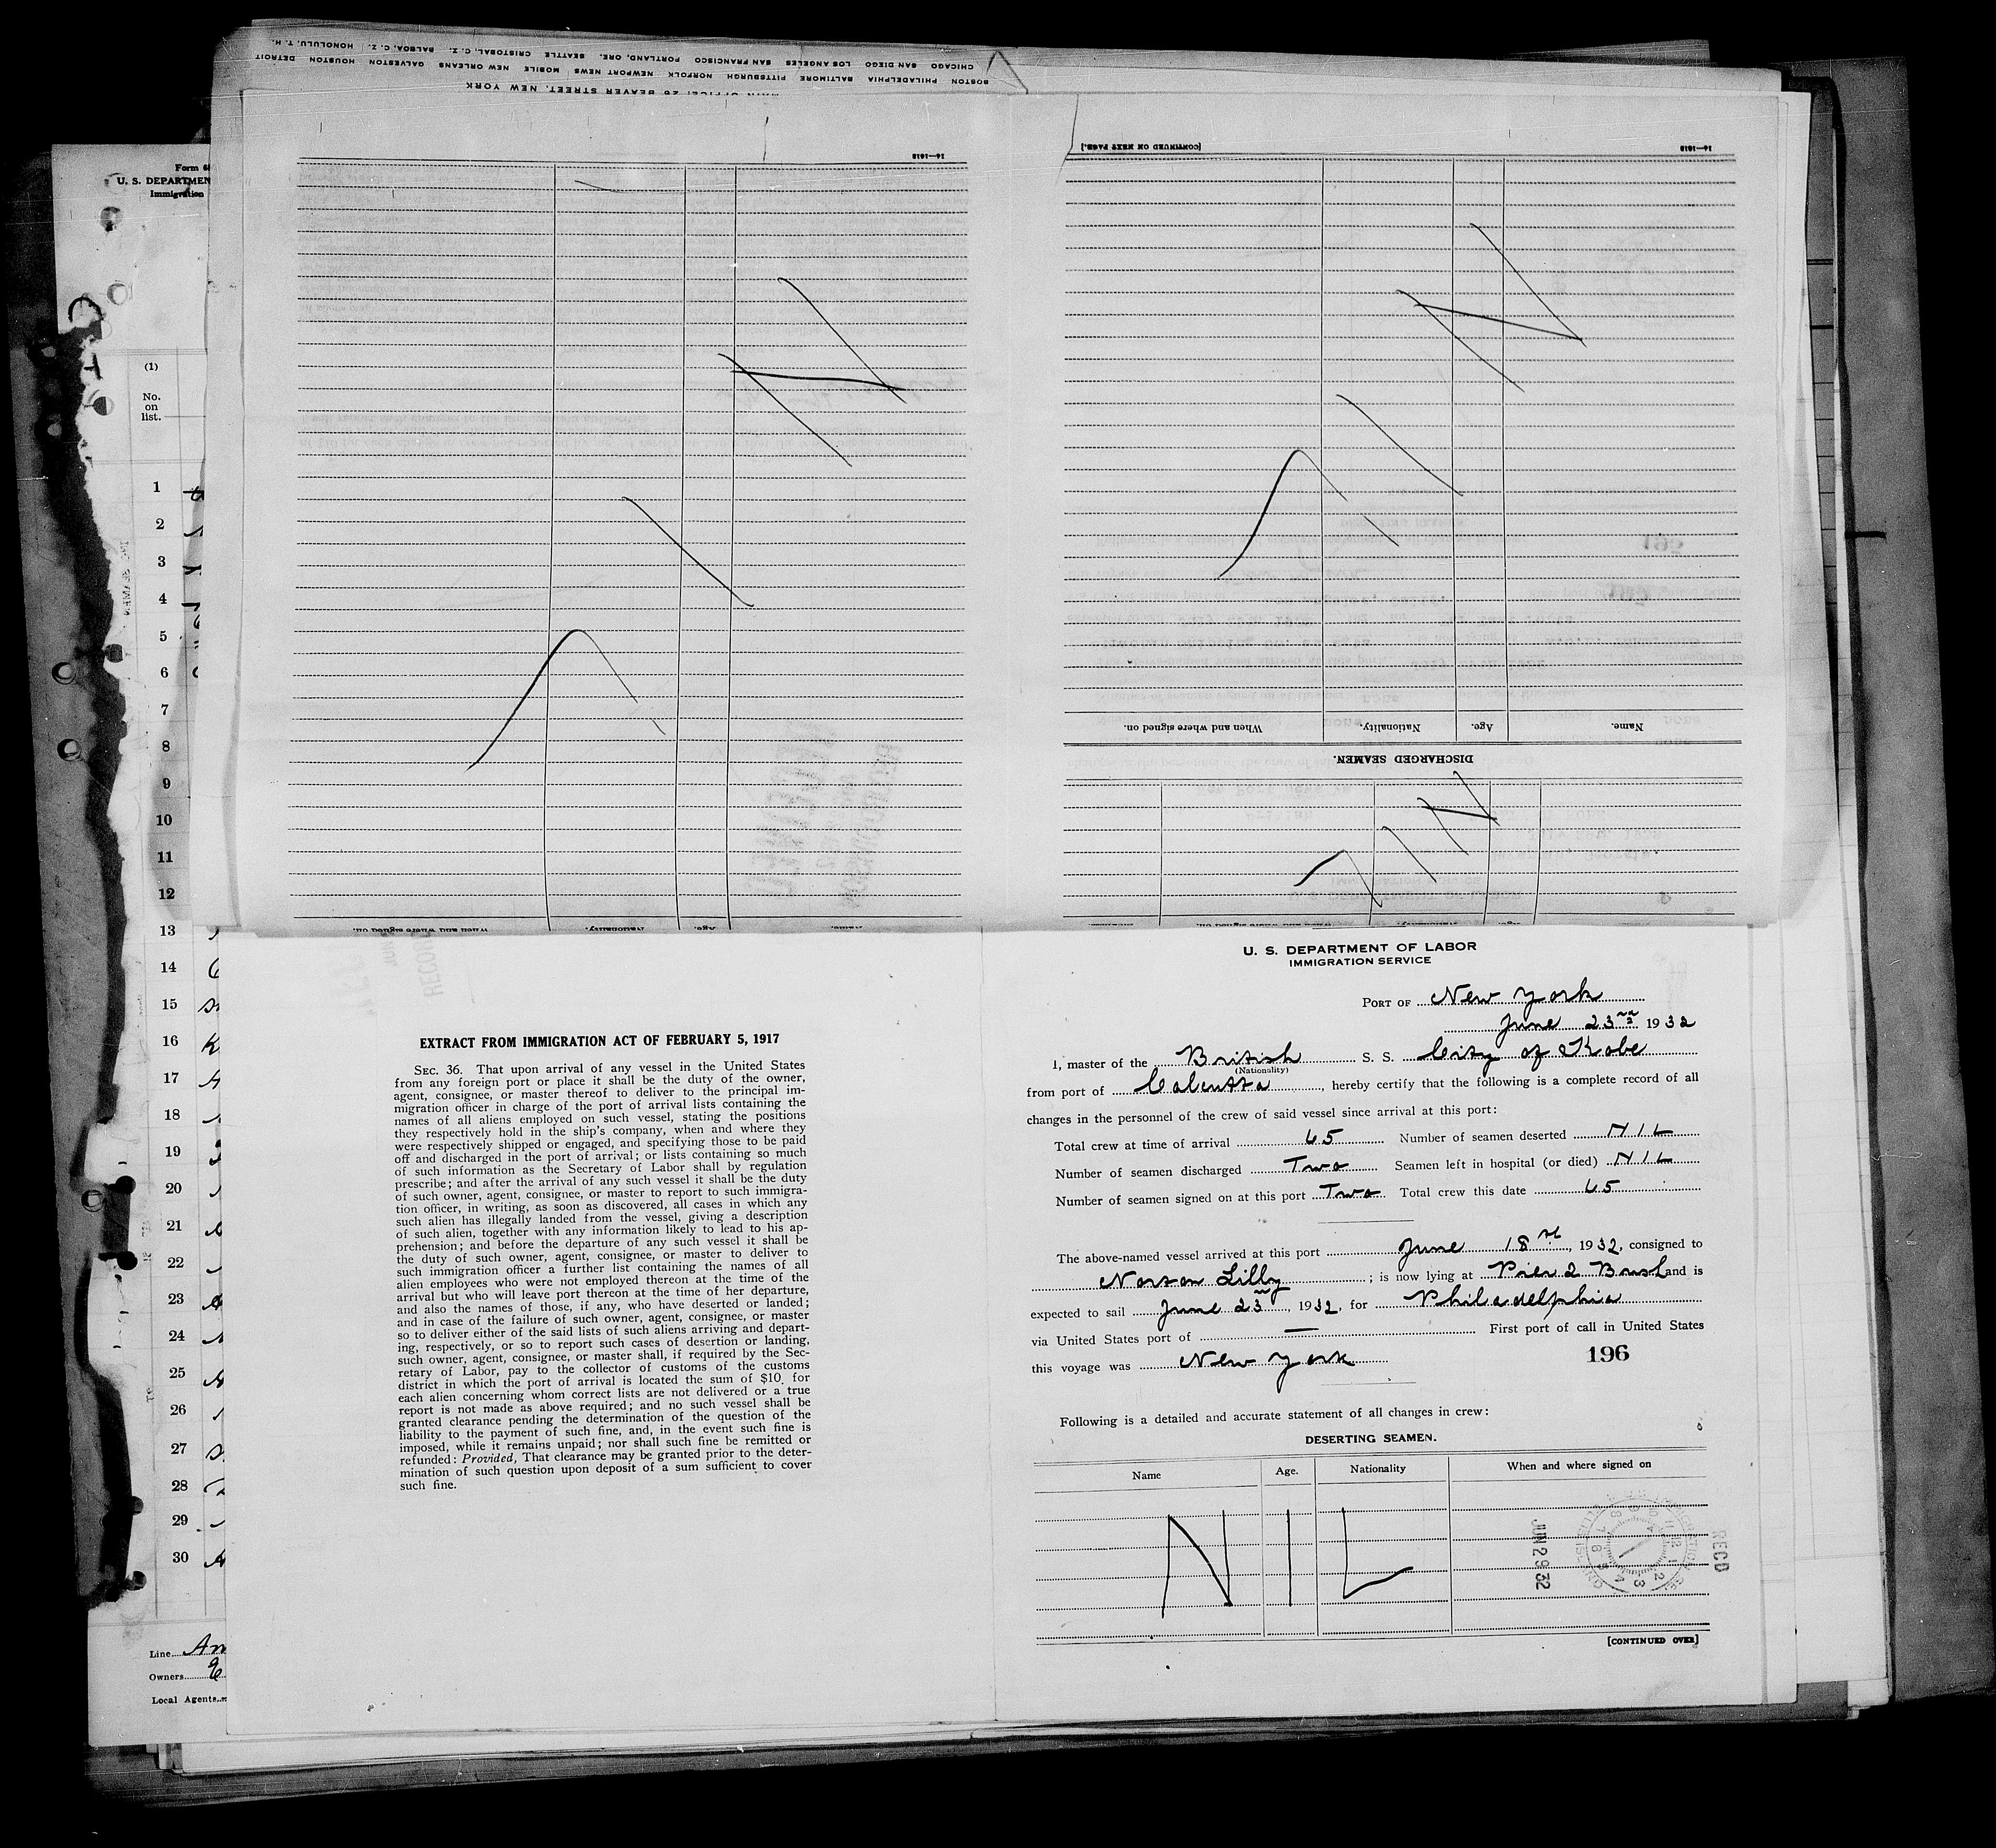 HONOLULU, T. H.   BALBOA, C. Z.   CRISTOBAL, C. Z.   SEATTLE   PORTLAND, ORE.   SAN FRANCISCO   LOS ANGELES   SAN DIEGO   CHICAGO
DETROIT   HOUSTON   GALVESTON   NEW ORLEANS   MOBILE   NEWPORT NEWS   NORFOLK   PITTSBURGH   BALTIMORE   PHILADELPHIA   BOSTON
MAIN OFFICE: 26 BEAVER STREET, NEW YORK
16—1618
[CONTINUED ON NEXT PAGE.]
16—1618
NIL
NIL
Name.   Age.   Nationality.   When and where signed on.
DISCHARGED SEAMEN.
NIL
Name.   Age.   Nationality.   When and where signed on.
U. S. DEPARTMEN
Immigration
(1)
No.
on
list.
1
2
3
4
5
6
7
8
9
10
11
12
13
14
15
16
17
18
19
20
21
22
23
24
25
26
27
28
29
30
Line
Owners
Local Agents
EXTRACT FROM IMMIGRATION ACT OF FEBRUARY 5, 1917
SEC. 36. That upon arrival of any vessel in the United States
from any foreign port or place it shall be the duty of the owner,
agent, consignee, or master thereof to deliver to the principal im-
migration officer in charge of the port of arrival lists containing the
names of all aliens employed on such vessel, stating the positions
they respectively hold in the ship's company, when and where they
were respectively shipped or engaged, and specifying those to be paid
off and discharged in the port of arrival; or lists containing so much
of such information as the Secretary of Labor shall by regulation
prescribe; and after the arrival of any such vessel it shall be the duty
of such owner, agent, consignee, or master to report to such immigra-
tion officer, in writing, as soon as discovered, all cases in which any
such alien has illegally landed from the vessel, giving a description
of such alien, together with any information likely to lead to his ap-
prehension; and before the departure of any such vessel it shall be
the duty of such owner, agent, consignee, or master to deliver to
such immigration officer a further list containing the names of all
alien employees who were not employed thereon at the time of the
arrival but who will leave port thereon at the time of her departure,
and also the names of those, if any, who have deserted or landed;
and in case of the failure of such owner, agent, consignee, or master
so to deliver either of the said lists of such aliens arriving and depart-
ing, respectively, or so to report such cases of desertion or landing,
such owner, agent, consignee, or master shall, if required by the Sec-
retary of Labor, pay to the collector of customs of the customs
district in which the port of arrival is located the sum of $10 for
each alien concerning whom correct lists are not delivered or a true
report is not made as above required; and no such vessel shall be
granted clearance pending the determination of the question of the
liability to the payment of such fine, and, in the event such fine is
imposed, while it remains unpaid; nor shall such fine be remitted or
refunded: Provided, That clearance may be granted prior to the deter-
mination of such question upon deposit of a sum sufficient to cover
such fine.
U. S. DEPARTMENT OF LABOR
IMMIGRATION SERVICE
PORT OF New York
June 23rd 1932
I, master of the British S. S. City of Kobe
(Nationality)
from port of Calcutta, hereby certify that the following is a complete record of all
changes in the personnel of the crew of said vessel since arrival at this port:
Total crew at time of arrival 65 Number of seamen deserted NIL
Number of seamen discharged Two Seamen left in hospital (or died) NIL
Number of seamen signed on at this port Two Total crew this date 65
The above-named vessel arrived at this port June 18th, 1932, consigned to
Norton Lilly; is now lying at Pier 2 Bush and is
expected to sail June 23rd, 1932, for Philadelphia
via United States port of — First port of call in United States
this voyage was New York
196
Following is a detailed and accurate statement of all changes in crew:
DESERTING SEAMEN.
Name   Age.   Nationality   When and where signed on
NIL
RECD
JUN 29 32
[CONTINUED OVER]